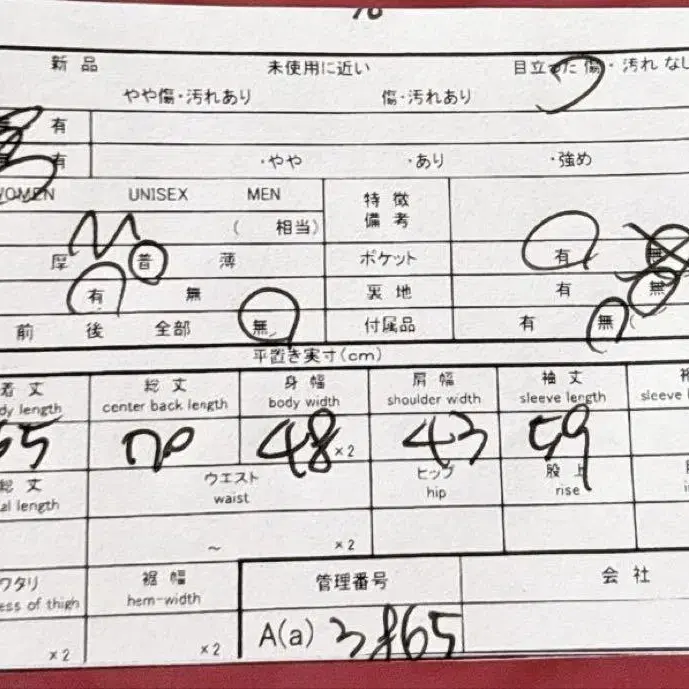 新品 未使用に近い 目立った傷・汚れなし
やや傷・汚れあり 傷・汚れあり
有
有 ・やや ・あり ・強め
WOMEN UNISEX MEN 特徴
備考
M ( 相当)
厚 普 薄 ポケット 有 無
有 無 裏地 有 無
前 後 全部 無 付属品 有 無 (
平置き実寸(cm)
着丈 総丈 身幅 肩幅 袖丈
dy length center back length body width shoulder width sleeve length sleeve l
65 70 48 ×2 43 59
総丈 ウエスト ヒップ 股上
al length waist hip rise
~ ×2
ワタリ 裾幅 管理番号 会社
ess of thigh hem-width
×2 ×2 A(a)